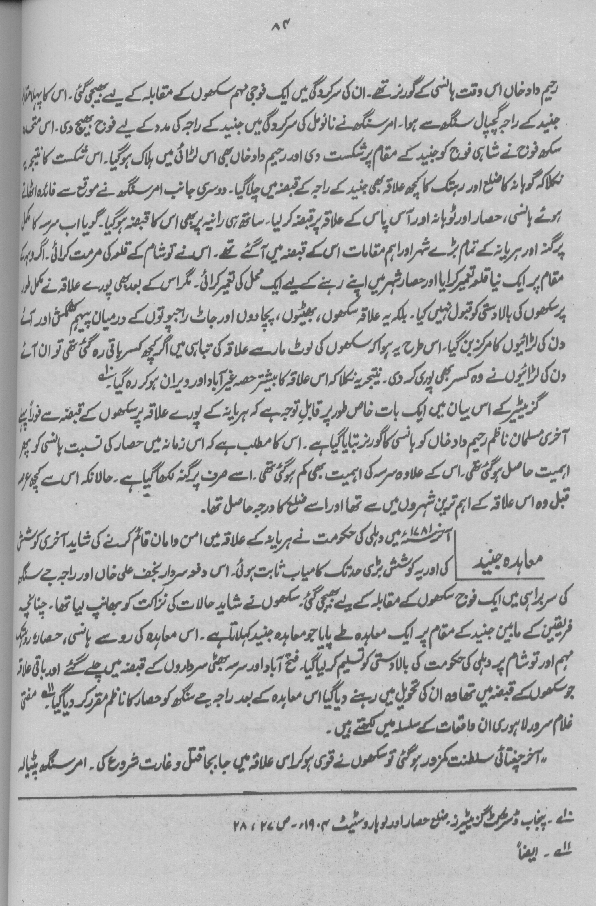 ۸۴
رحیم داد خاں اس وقت ہانسی کے گورنر تھے۔ ان کی سرکردگی میں ایک فوجی مہم سکھوں کے مقابلہ کے لیے بھیجی گئی۔ اس کا پہلا مقابلہ
جنید کے راجہ گجپال سنگھ سے ہوا۔ امر سنگھ نے نانومل کی سرکردگی میں جنید کے راجہ کی مدد کے لیے فوج بھیج دی۔ اس متحدہ
سکھ فوج نے شاہی فوج کو جنید کے مقام پر شکست دی اور رحیم داد خاں بھی اس لڑائی میں ہلاک ہو گیا۔ اس شکست کا نتیجہ یہ
نکلا کہ گوہانہ کا ضلع اور رہتک کا کچھ علاقہ بھی جنید کے راجہ کے قبضہ میں چلا گیا۔ دوسری جانب امر سنگھ نے موقع سے فائدہ اٹھاتے
ہوئے ہانسی، حصار اور ٹوہانہ اور آس پاس کے علاقہ پر قبضہ کر لیا۔ ساتھ ہی رانیہ پر بھی اس کا قبضہ ہو گیا۔ گویا اب سرسہ کا مکمل
پرگنہ اور ہریانہ کے تمام بڑے شہر اور اہم مقامات اس کے قبضہ میں آ گئے تھے۔ اس نے توشام کے قلعہ کی مرمت کرائی۔ اگروہہ کے
مقام پر ایک نیا قلعہ تعمیر کرایا اور حصار شہر میں اپنے رہنے کے لیے ایک محل کی تعمیر کرائی۔ مگر اس کے بعد بھی پورے علاقہ نے مکمل طور
پر سکھوں کی بالادستی کو قبول نہیں کیا۔ بلکہ یہ علاقہ سکھوں، بھٹیوں، پچادوں اور جاٹ راجپوتوں کے درمیان پیہم کشمکش اور آئے
دن کی لڑائیوں کا مرکز بن گیا۔ اس طرح یہ ہوا کہ سکھوں کی لوٹ مار سے علاقہ کی تباہی میں اگر کچھ کسر باقی رہ گئی تھی تو ان آئے
دن کی لڑائیوں نے وہ کسر بھی پوری کر دی۔ نتیجہ یہ نکلا کہ اس علاقہ کا بیشتر حصہ غیر آباد اور ویران ہو کر رہ گیا۔ ۱۰؎
گزیٹیر کے اس بیان میں ایک بات خاص طور پر قابل توجہ ہے کہ ہریانہ کے پورے علاقہ پر سکھوں کے قبضہ سے فوراً پہلے
آخری مسلمان ناظم رحیم داد خاں کو ہانسی کا گورنر بتایا گیا ہے۔ اس کا مطلب ہے کہ اس زمانہ میں حصار کی نسبت ہانسی کو پھر
اہمیت حاصل ہو گئی تھی۔ اس کے علاوہ سرسہ کی اہمیت بھی کم ہو گئی تھی۔ اسے صرف پرگنہ لکھا گیا ہے۔ حالانکہ اس سے کچھ عرصہ
قبل وہ اس علاقہ کے اہم ترین شہروں میں سے تھا اور اسے ضلع کا درجہ حاصل تھا۔
معاہدہ جنید
آخر ۱۷۸۱ء میں دہلی کی حکومت نے ہریانہ کے علاقہ میں امن و امان قائم کرنے کی شاید آخری کوشش
کی اور یہ کوشش بڑی حد تک کامیاب ثابت ہوئی۔ اس دفعہ سردار نجف علی خاں اور راجہ جے سنگھ
کی سربراہی میں ایک فوج سکھوں کے مقابلہ کے لیے بھیجی گئی۔ سکھوں نے شاید حالات کی نزاکت کو بھانپ لیا تھا۔ چنانچہ
فریقین کے مابین جنید کے مقام پر ایک معاہدہ طے پایا جو معاہدہ جنید کہلاتا ہے۔ اس معاہدہ کی رو سے ہانسی، حصار، رہتک
مہم اور توشام پر دہلی کی حکومت کی بالادستی کو تسلیم کر لیا گیا۔ فتح آباد اور سرسہ بھٹی سرداروں کے قبضہ میں چلے گئے اور باقی علاقہ
جو سکھوں کے قبضہ میں تھا وہ ان کی تحویل میں رہنے دیا گیا اس معاہدہ کے بعد راجہ جے سنگھ کو حصار کا ناظم مقرر کر دیا گیا۔ ۱۱؎ مفتی
غلام سرور لاہوری ان واقعات کے سلسلہ میں لکھتے ہیں۔
"آخر چغتائی سلطنت کمزور ہو گئی تو سکھوں نے قوی ہو کر اس علاقہ میں جا بجا قتل و غارت شروع کی۔ امر سنگھ پٹیالہ
۱۰؎۔ پنجاب ڈسٹرکٹ گزیٹیرز، ضلع حصار اور لوہارو سٹیٹ ۱۹۰۴ء۔ ص ۲۷، ۲۸
۱۱؎۔ ایضاً